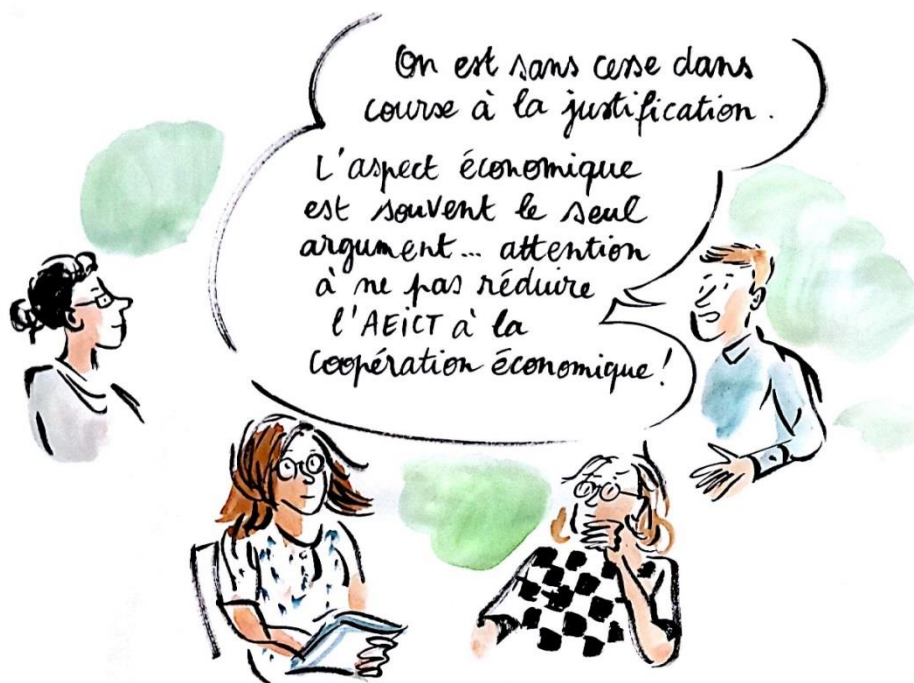 On est sans cesse dans
course à la justification.
L'aspect économique
est souvent le seul
argument... attention
à ne pas réduire
l'AEiCT à la
coopération économique!